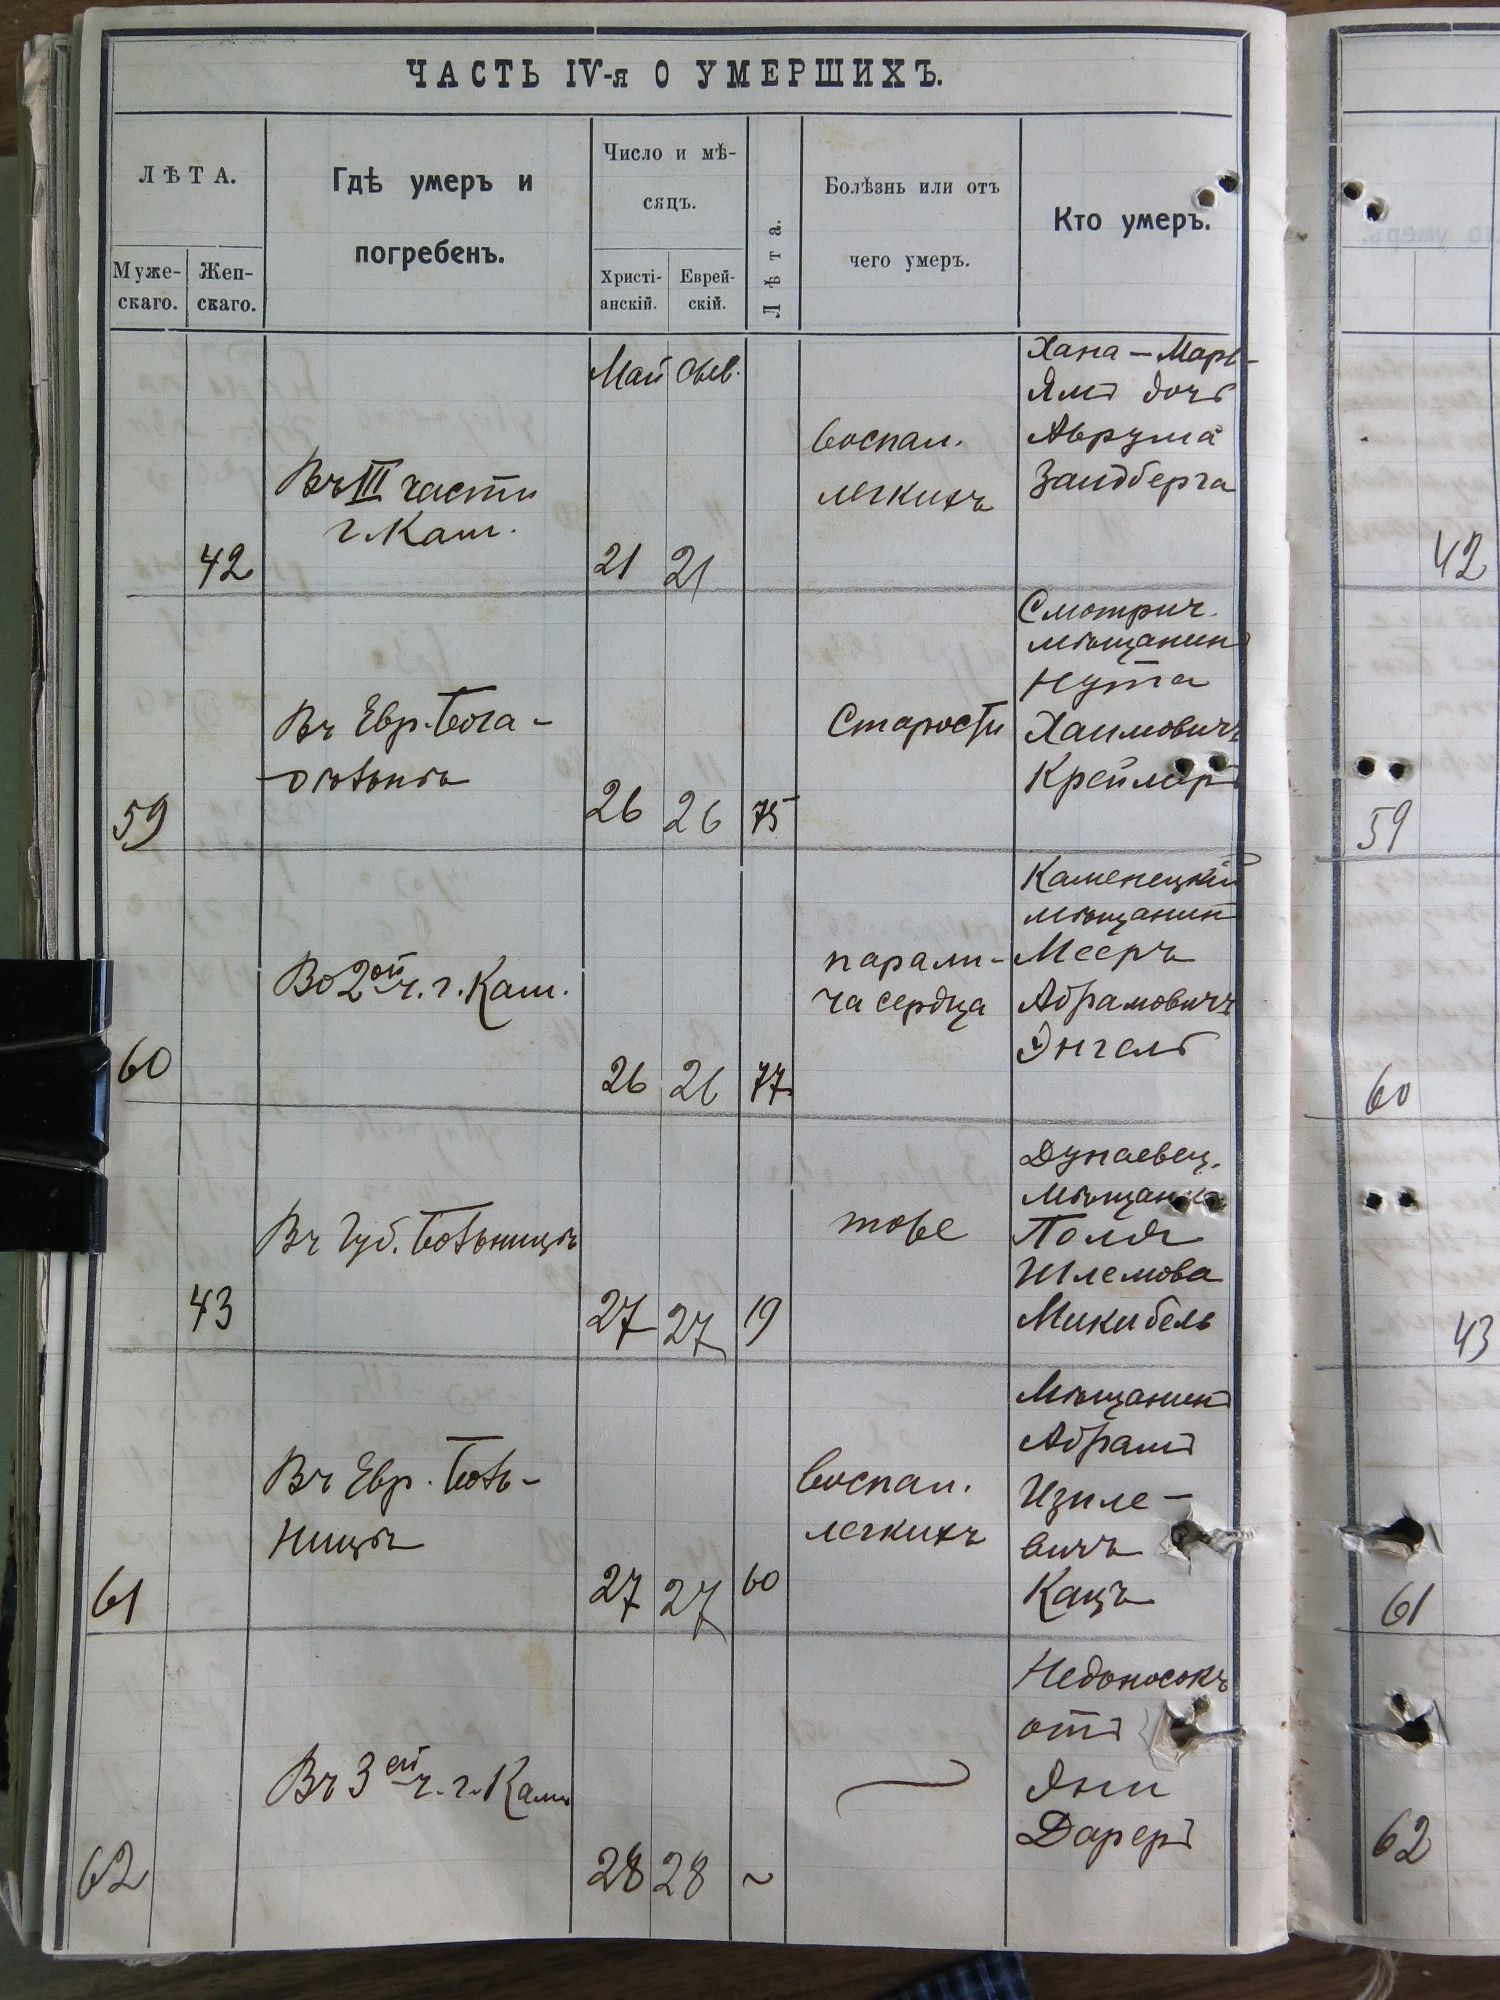 ЧАСТЬ IV-я О УМЕРШИХЪ.
ЛѢТА.
Муже-
скаго.
Жен-
скаго.
Гдѣ умеръ и
погребенъ.
Число и мѣ-
сяцъ.
Христі-
анскій.
Еврей-
скій.
Лѣта.
Болѣзнь или отъ
чего умеръ.
Кто умеръ.
Май
Въ III части
г. Кам.
42
21 21
воспал.
легкихъ
Хана-Марь-
ямъ дочь
Аврума
Зайдберга
42
Въ Евр. Бога-
дѣльнѣ
59
26 26 75
Старости
Смотрич.
мѣщанинъ
Нута
Хаимовичъ
59
Во 2ой ч. г. Кам.
60
26 26 77
парали-
ча сердца
Каменецкій
мѣщанинъ
Мееръ
Абрамовичъ
Энгель
60
Въ Губ. Больницѣ
43
27 27 19
тоже
Дунаевец.
Поля
Шлемова
43
Въ Евр. Боль-
ницѣ
61
27 27 60
воспал.
легкихъ
Мѣщанинъ
Абрамъ
Изиле-
вичъ
Кацъ
61
Въ 3ей ч. г. Кам
62
28 28 ~
Недоносокъ
отъ
62